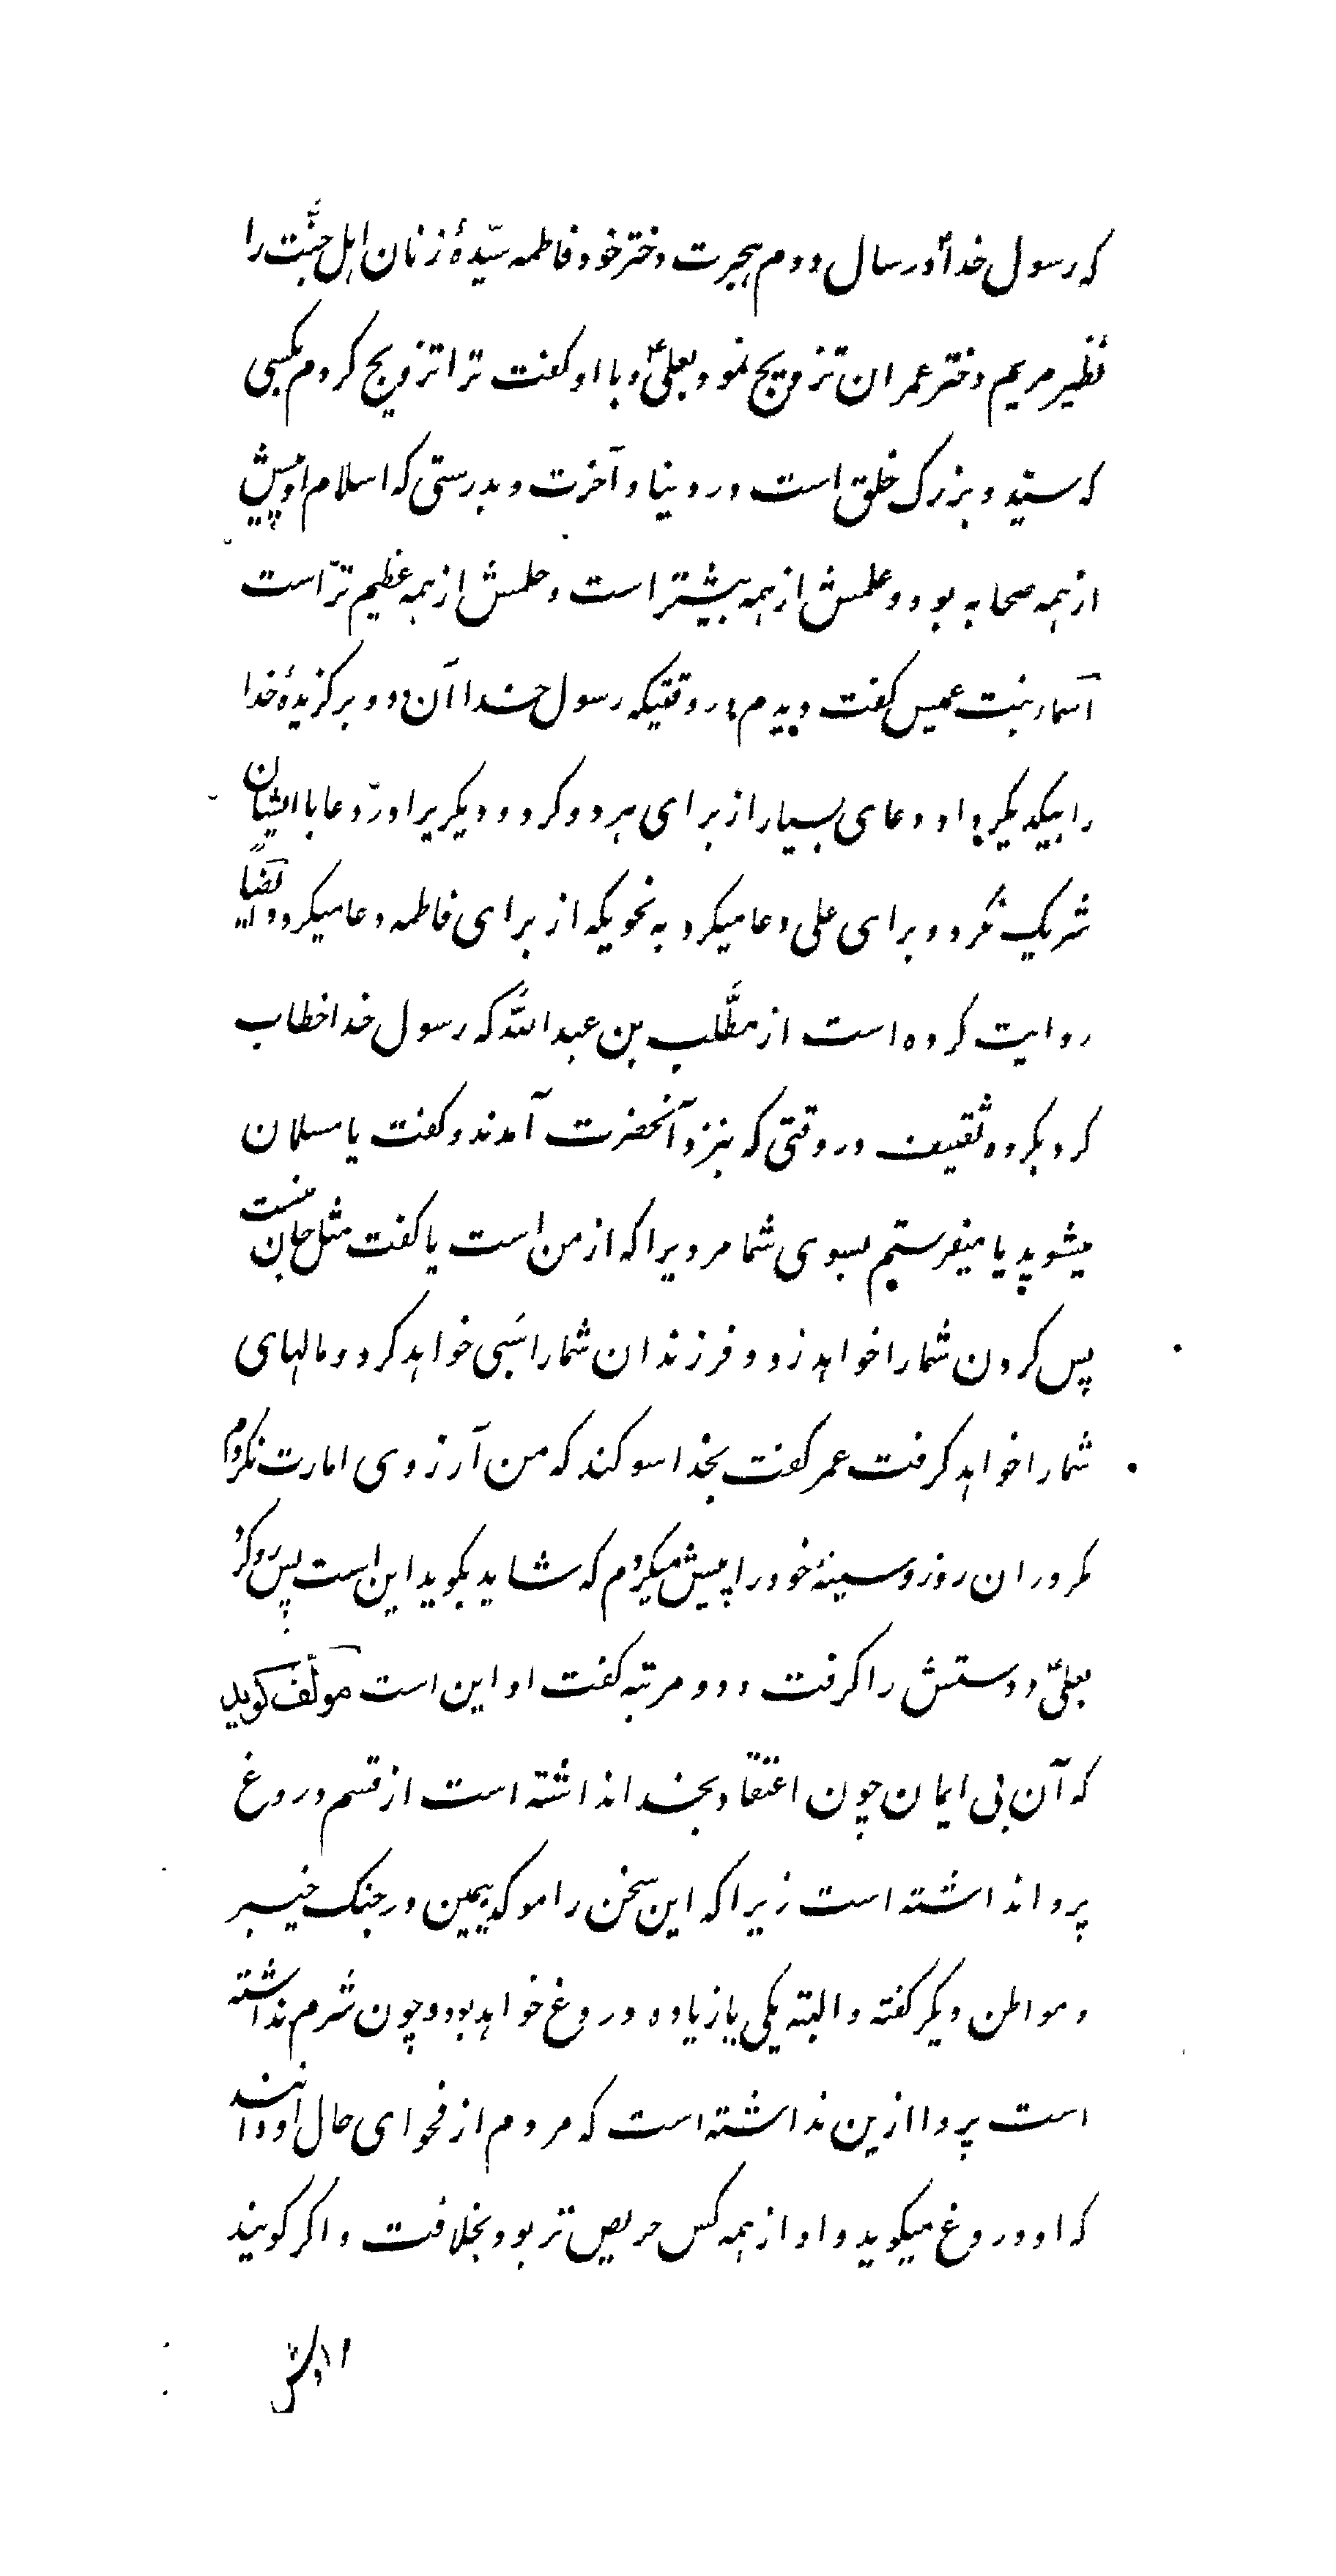 که رسول خداؐ در سال دوم هجرت دختر خود فاطمه سیّدهٔ زنان اهل جنّت را
نظیر مریم دختر عمران تزویج نمود بعلیؑ و با او کفت ترا تزویج کردم بکسی
که سیّد و بزرک خلق است در دنیا و آخرت و بدرستی که اسلام او پیش
از همه صحابه بود و علمش از همه بیشتر است و حلمش از همه عظیم تر است
اسماء بنت عمیس کفت دیدم در وقتیکه رسول خدا آن دو برکزیدهٔ خدا
را بیکدیکر داد دعای بسیار از برای هر دو کرد و دیکریرا در دعا با ایشان
شریک نکرد و برای علی دعا میکرد به نحویکه از برای فاطمه دعا میکرد و ایضاً
روایت کرده است از مطّلب بن عبد اللّه که رسول خدا خطاب
کرد بکروه ثقیف در وقتی که بنزد آنحضرت آمدند و کفت یا مسلمان
میشوید یا میفرستم بسوی شما مردیرا که از من است یا کفت مثل جان منست
پس کردن شما را خواهد زد و فرزندان شما را سَبی خواهد کرد و مالهای
شما را خواهد کرفت عمر کفت بخدا سوکند که من آرزوی امارت نکردم
مکر در ان روز و سینهٔ خود را پیش میکردم که شاید بکوید این است پس رو کرد
بعلیؑ و دستش را کرفت و دو مرتبه کفت او این است مولّف کوید
که آن بی ایمان چون اعتقاد بخدا نداشته است از قسم دروغ
پروا نداشته است زیرا که این سخن را موکد بیمین در جنک خیبر
و مواطن دیکر کفته و البته یکی یا زیاده دروغ خواهد بود و چون شرم نداشته
است پروا ازین نداشته است که مردم از فحوای حال او دانند
که او دروغ میکوید و او از همه کس حریص تر بود بخلافت و اکر کویند